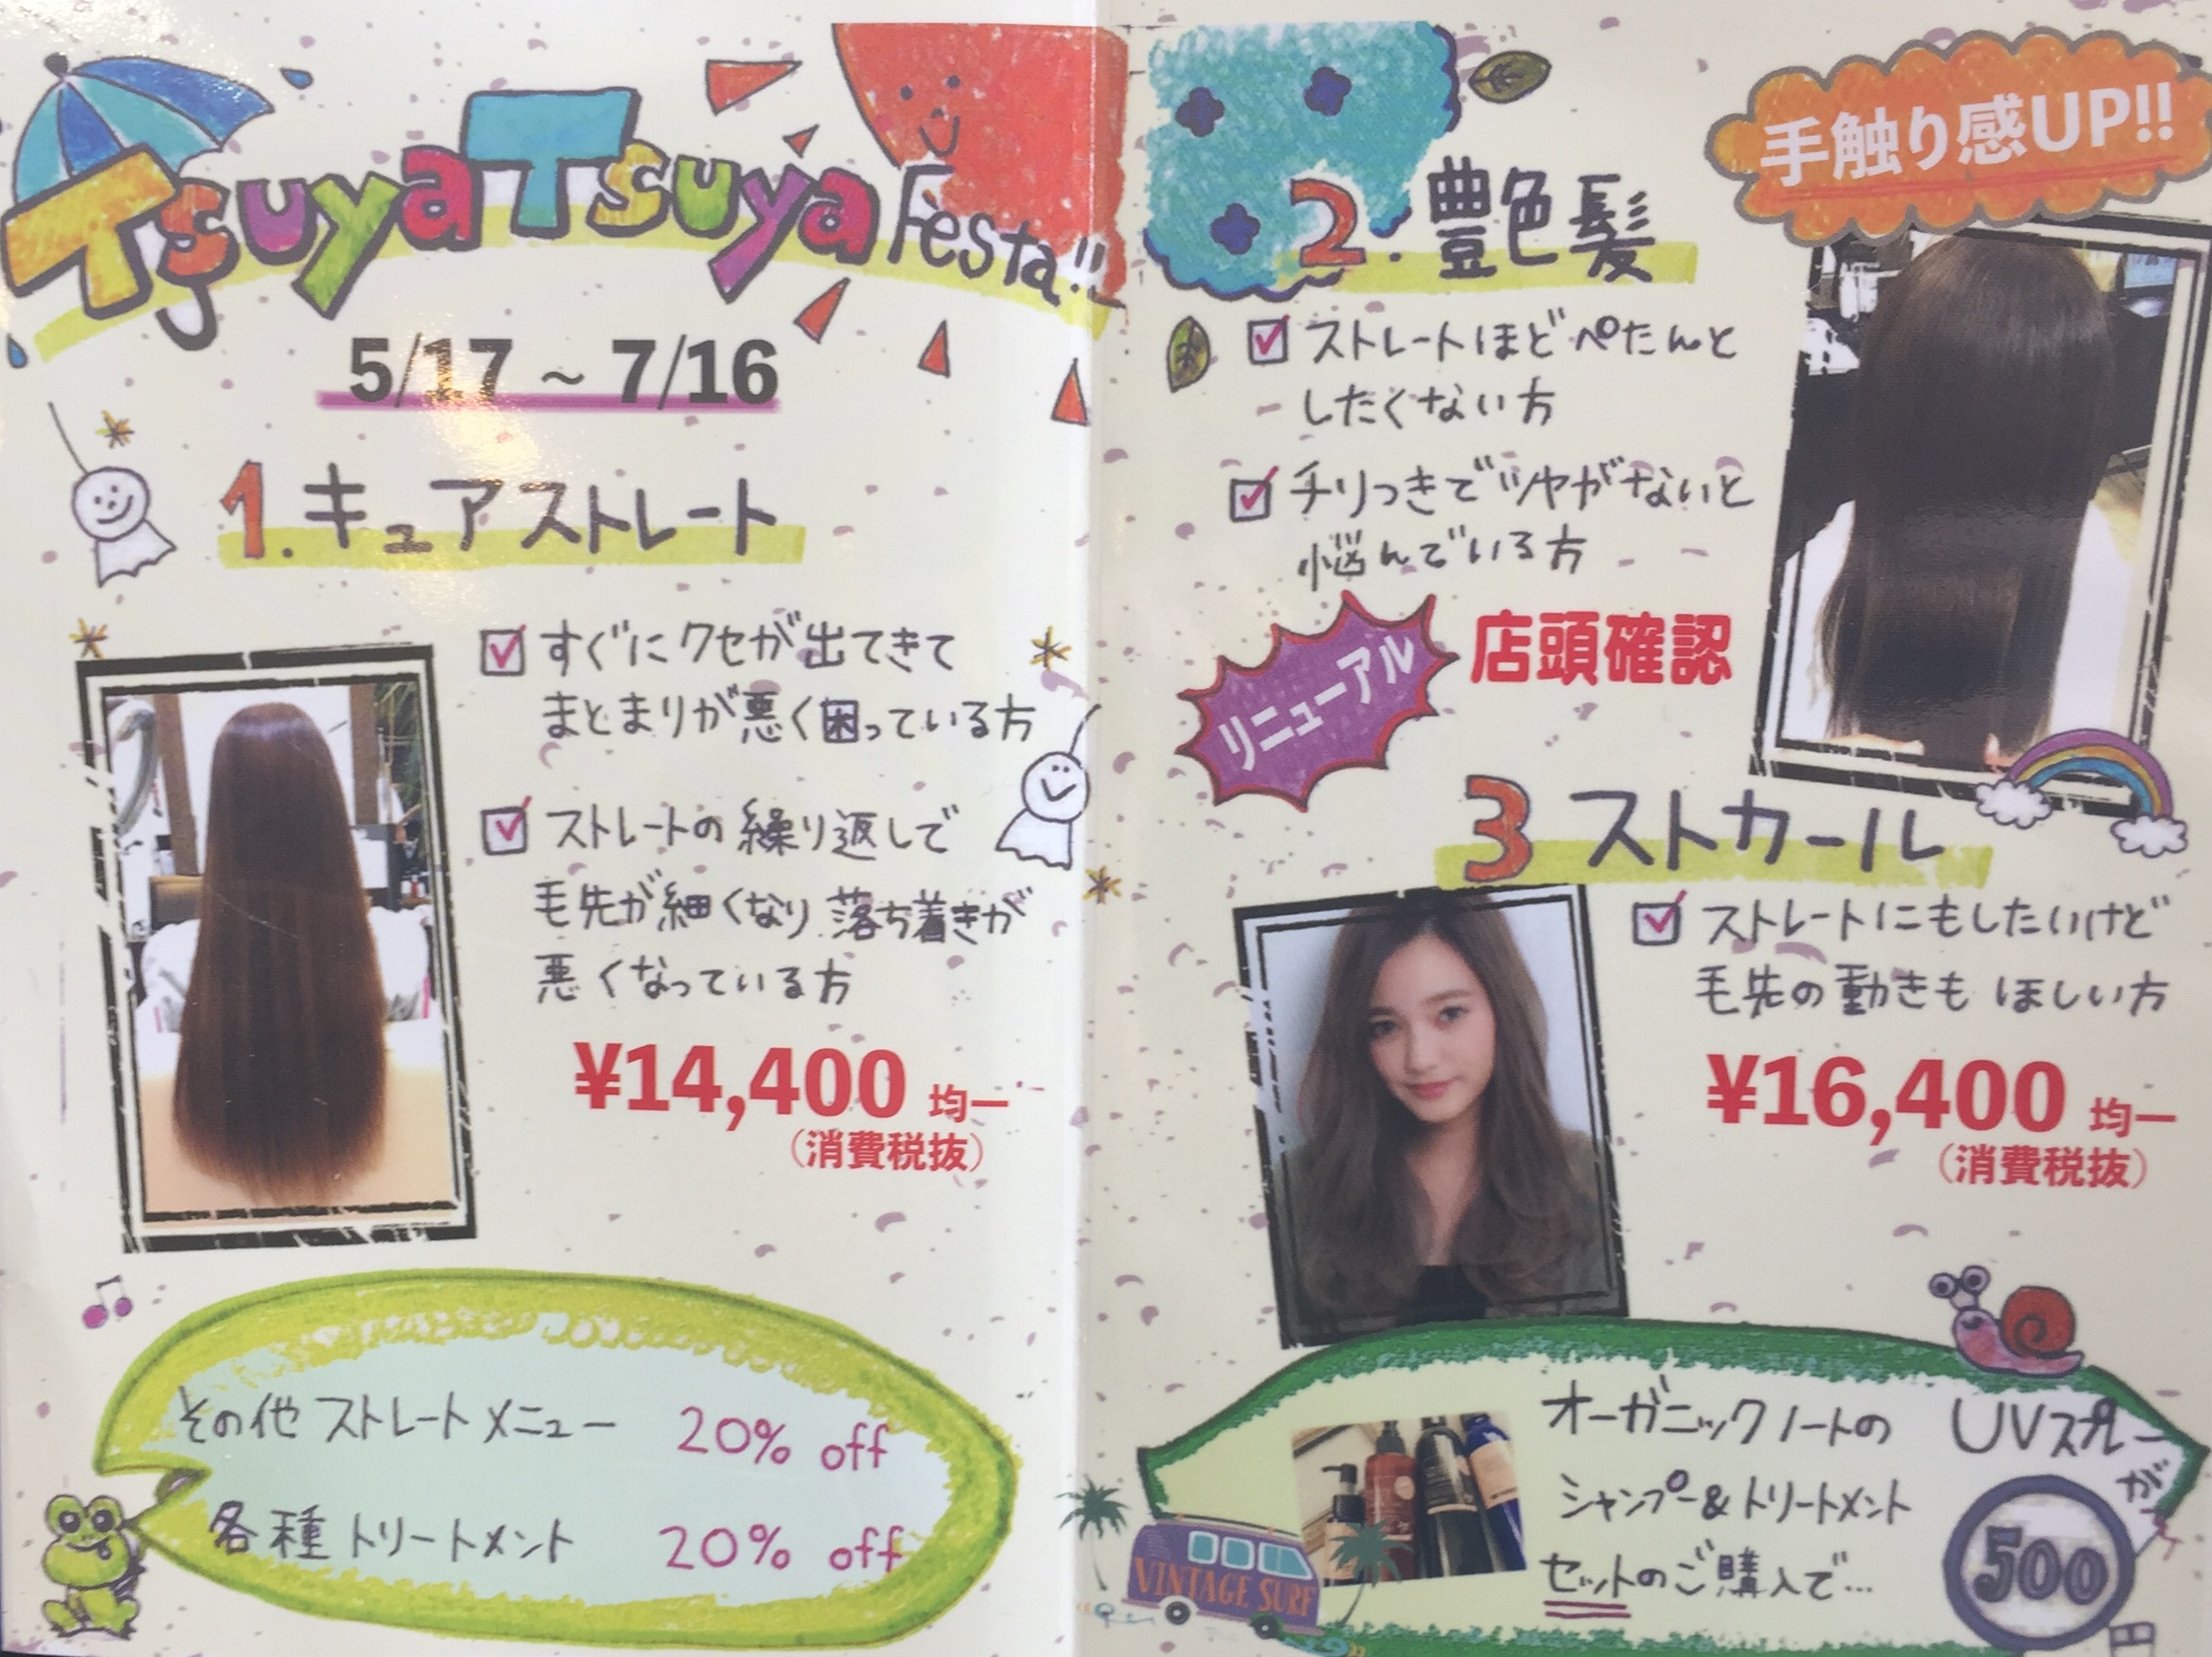 TsuyaTsuya Festa!!
5/17 ~ 7/16
1.キュアストレート
すぐにクセが出てきて
まとまりが悪く困っている方
ストレートの繰り返しで
毛先が細くなり落ち着きが
悪くなっている方
¥14,400 均一
(消費税抜)
その他ストレートメニュー 20% off
各種トリートメント 20% off
手触り感UP!!
2.艶色髪
ストレートほどぺたんと
したくない方
チリつきでツヤがないと
悩んでいる方
リニューアル
店頭確認
3 ストカール
ストレートにもしたいけど
毛先の動きもほしい方
¥16,400 均一
(消費税抜)
オーガニックノートの
シャンプー&トリートメント
セットのご購入で…
UVスプレー
が
500
円
VINTAGE SURF